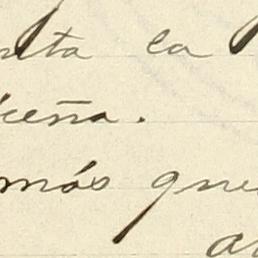 nta la
ceña.
más que
a